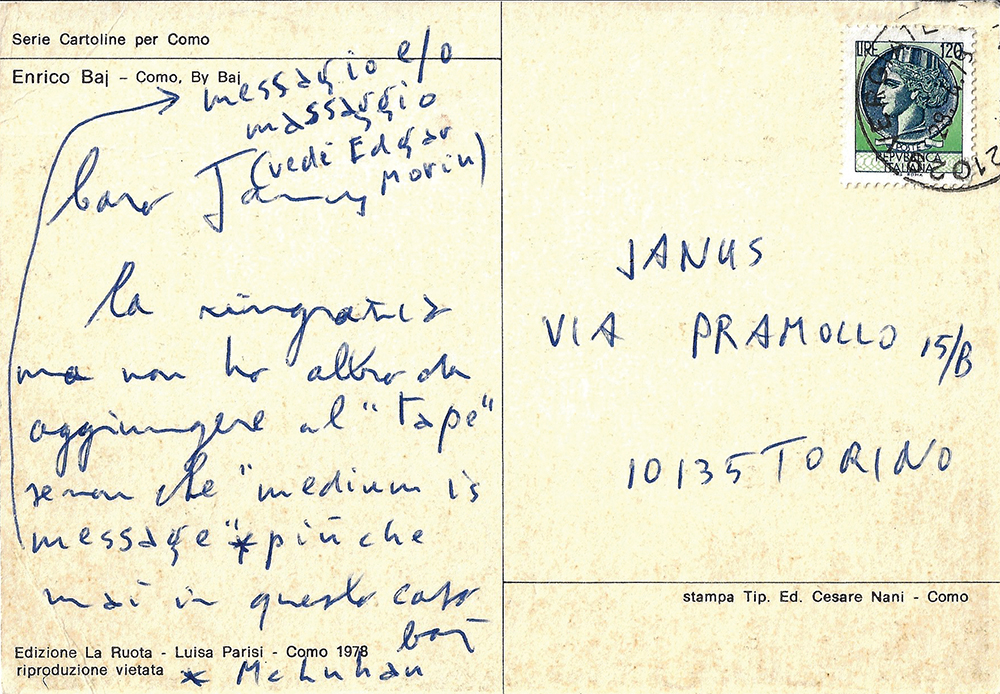 Serie Cartoline per Como
Enrico Baj – Como, By Baj
messaggio e/o
massaggio
(vedi Edgar
Morin)
Caro Janus
la ringrazio
ma non ho altro da
aggiungere al "tape"
se non che "medium is
message"* più che
mai in questo caso
baj
* McLuhan
Edizione La Ruota - Luisa Parisi - Como 1978
riproduzione vietata
LIRE 120
POSTE
REPVBBLICA
ITALIANA
JANUS
VIA PRAMOLLO 15/B
10135 TORINO
stampa Tip. Ed. Cesare Nani - Como